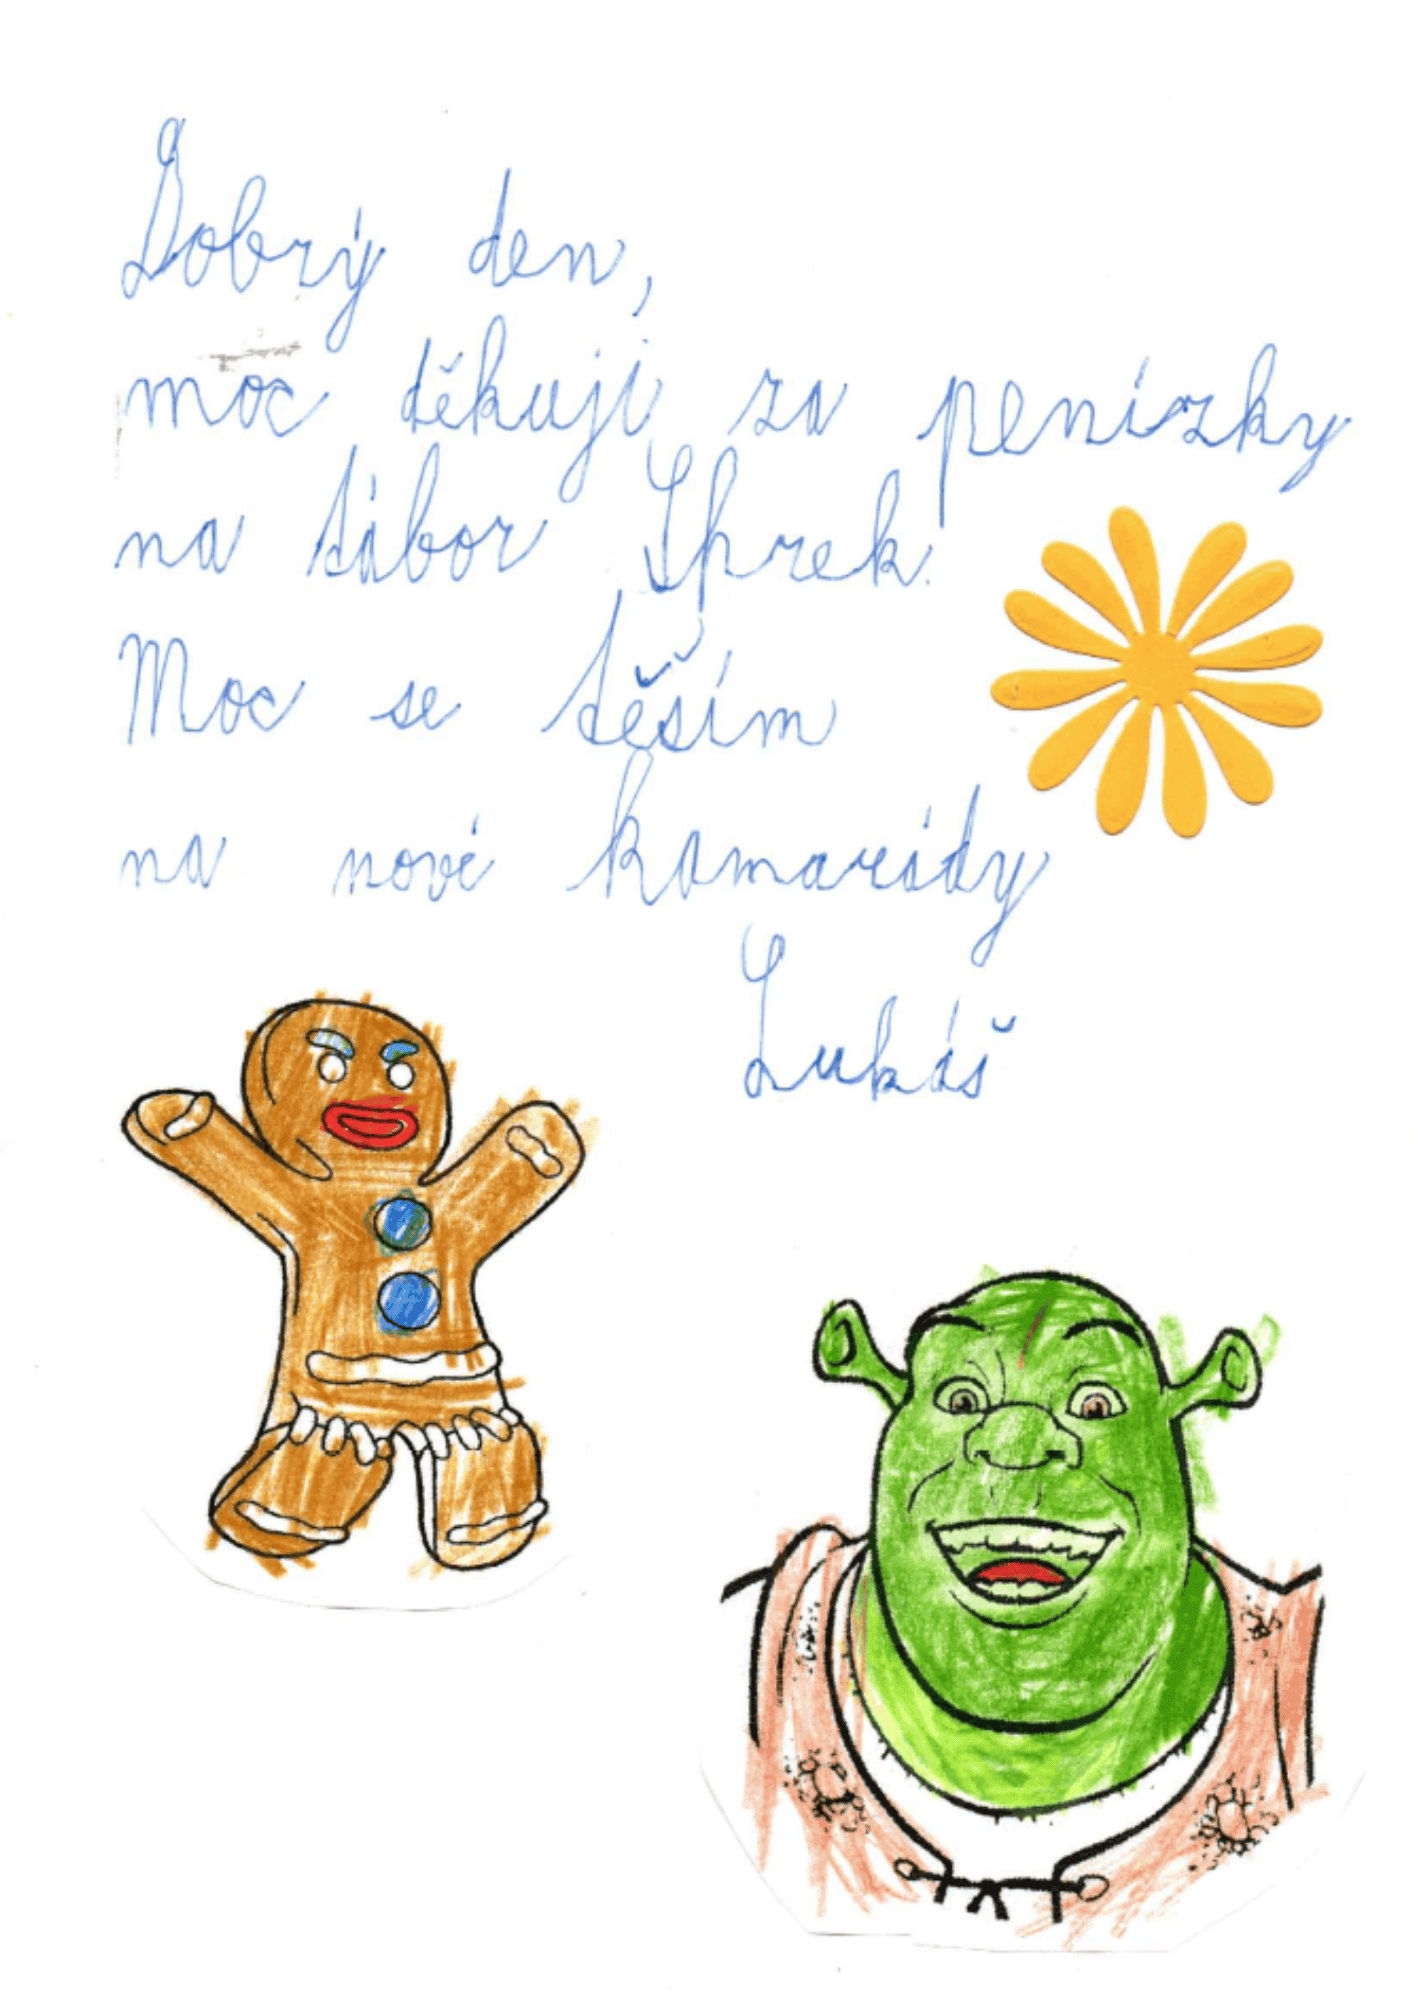 Dobrý den,
moc děkuji za penízky
na tábor Shrek.
Moc se těším
na nové kamarády
Lukáš